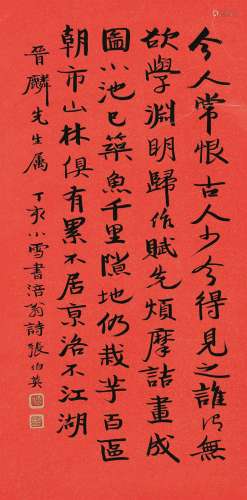 今人常恨古人少今得見之誰謂無
欲學淵明歸作賦先煩摩詰畫成
圖小池已築魚千里隙地仍栽芋百區
朝市山林俱有累不居京洛不江湖
晉麟先生屬
丁亥小雪書涪翁詩張伯英